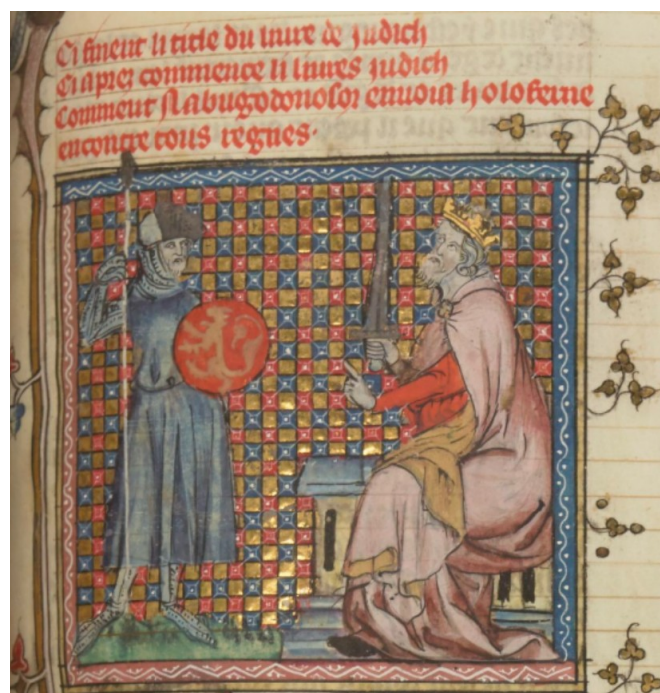 Ci finent li title du liure de Judich
Ci apres commence li liures judich
Comment Nabugodonosor enuoia holoferne
encontre tous regnes.